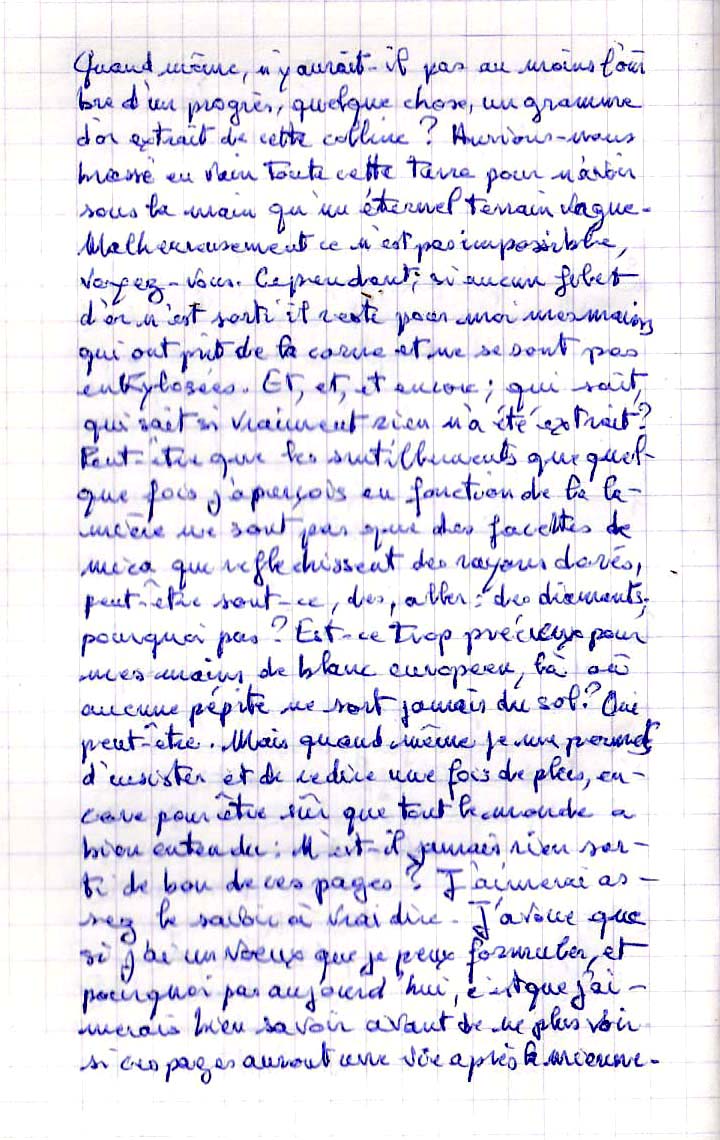 Quand même, n'y aurait-il pas au moins l'om
bre d'un progrès, quelque chose, un gramme
d'or extrait de cette colline ? Aurions-nous
brassé en vain toute cette terre pour n'avoir
sous la main qu'un éternel terrain vague.
Malheureusement ce n'est pas impossible,
voyez-vous. Cependant, si aucun filet
d'or n'est sorti il reste pour moi mes mains
qui ont pris de la corne et ne se sont pas
enkylosées. Et, et, et encore ; qui sait,
qui sait si vraiment rien n'a été extrait ?
Peut-être que les scintillements que quel-
que fois j'aperçois en fonction de la lu-
mière ne sont pas que des facettes de
mica qui reflechissent des rayons dorés,
peut-être sont-ce, des, allez : des diamants,
pourquoi pas ? Est-ce trop précieux pour
mes mains de blanc européen, là où
aucune pépite ne sort jamais du sol ? Oui
peut-être. Mais quand même je me permets
d'insister et de redire une fois de plus, en-
core pour être sûr que tout le monde a
bien entendu : N'est-il jamais rien sor-
ti de bon de ces pages ? J'aimerai as-
sez le savoir à vrai dire. J'avoue que
si j'ai un voeux que je peux formuler, et
pourquoi pas aujourd'hui, c'est que j'ai-
merais bien savoir avant de ne plus voir
si ces pages auront une vie après la mienne.